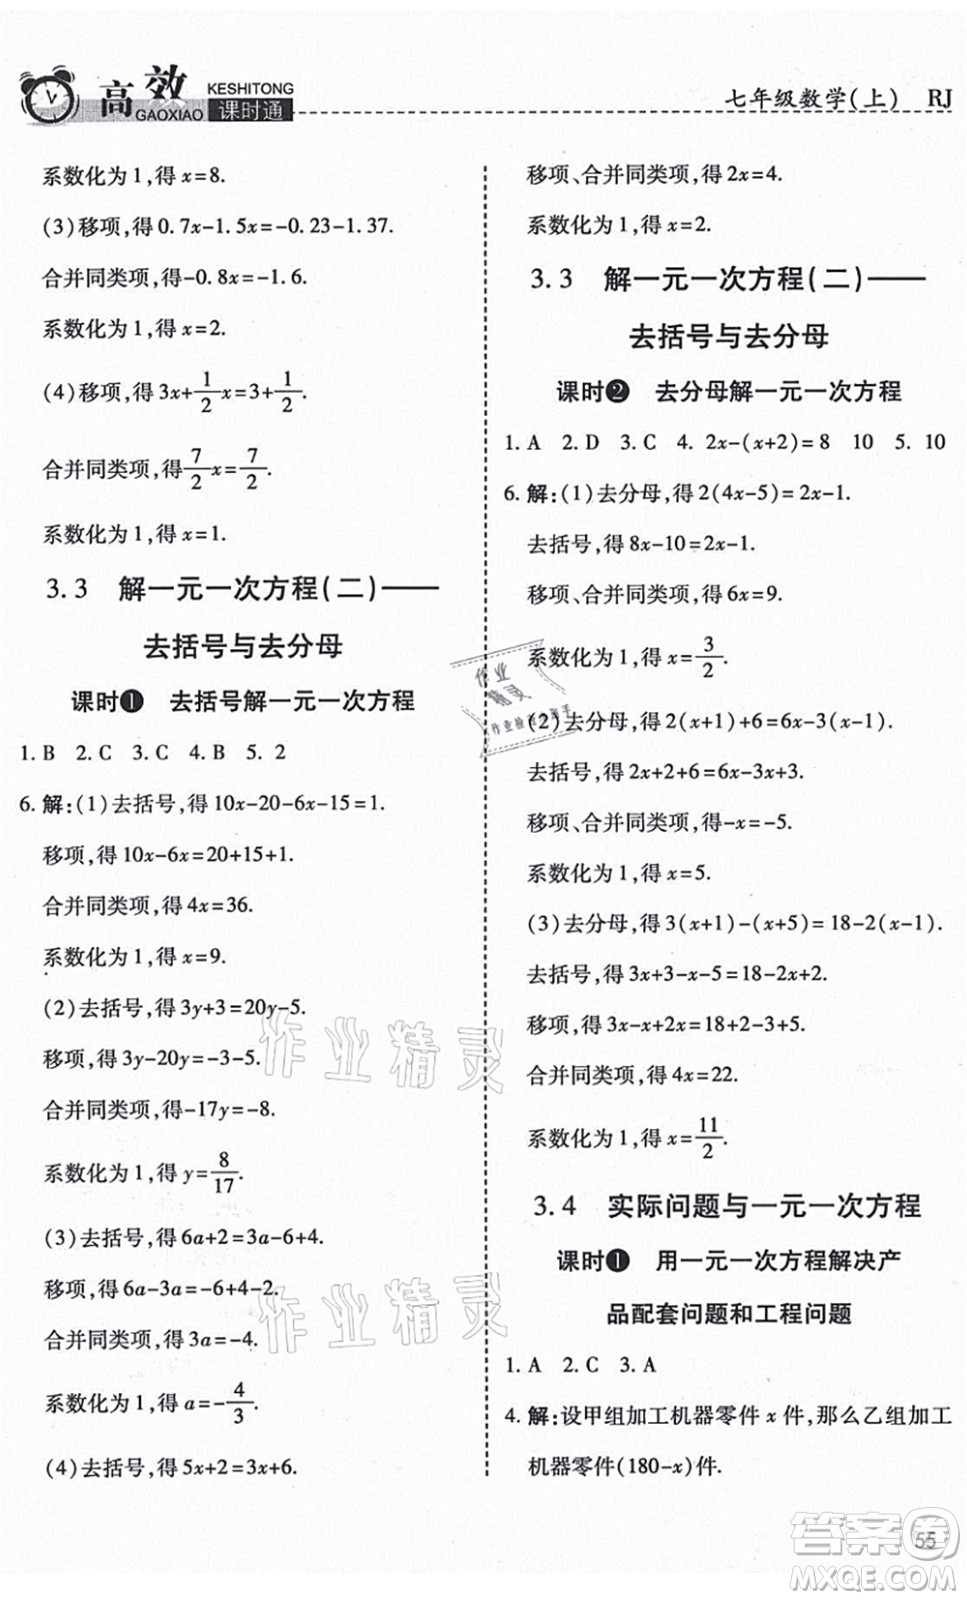 高效 KESHITONG
GAOXIAO 课时通
七年级数学(上) RJ
系数化为1,得 x=8.
(3)移项,得 0.7x-1.5x=-0.23-1.37.
合并同类项,得-0.8x=-1.6.
系数化为1,得 x=2.
(4)移项,得 3x+1/2x=3+1/2.
合并同类项,得7/2x=7/2.
系数化为1,得 x=1.
3.3 解一元一次方程(二)——
去括号与去分母
课时❶ 去括号解一元一次方程
1. B 2. C 3. C 4. B 5. 2
6. 解:(1)去括号,得 10x-20-6x-15=1.
移项,得 10x-6x=20+15+1.
合并同类项,得 4x=36.
系数化为1,得 x=9.
(2)去括号,得 3y+3=20y-5.
移项,得 3y-20y=-3-5.
合并同类项,得-17y=-8.
系数化为1,得 y=8/17.
(3)去括号,得 6a+2=3a-6+4.
移项,得 6a-3a=-6+4-2.
合并同类项,得 3a=-4.
系数化为1,得 a=-4/3.
(4)去括号,得 5x+2=3x+6.
移项、合并同类项,得 2x=4.
系数化为1,得 x=2.
3.3 解一元一次方程(二)——
去括号与去分母
课时❷ 去分母解一元一次方程
1. A 2. D 3. C 4. 2x-(x+2)=8 10 5. 10
6. 解:(1)去分母,得 2(4x-5)=2x-1.
去括号,得 8x-10=2x-1.
移项、合并同类项,得 6x=9.
系数化为1,得 x=3/2.
(2)去分母,得 2(x+1)+6=6x-3(x-1).
去括号,得 2x+2+6=6x-3x+3.
移项、合并同类项,得-x=-5.
系数化为1,得 x=5.
(3)去分母,得 3(x+1)-(x+5)=18-2(x-1).
去括号,得 3x+3-x-5=18-2x+2.
移项,得 3x-x+2x=18+2-3+5.
合并同类项,得 4x=22.
系数化为1,得 x=11/2.
3.4 实际问题与一元一次方程
课时❶ 用一元一次方程解决产
品配套问题和工程问题
1. A 2. C 3. A
4. 解:设甲组加工机器零件 x 件,那么乙组加工
机器零件(180-x)件.
55
作业
精灵
作业检查小帮手
作业精灵
作业精灵
答案圈
MXQE.COM